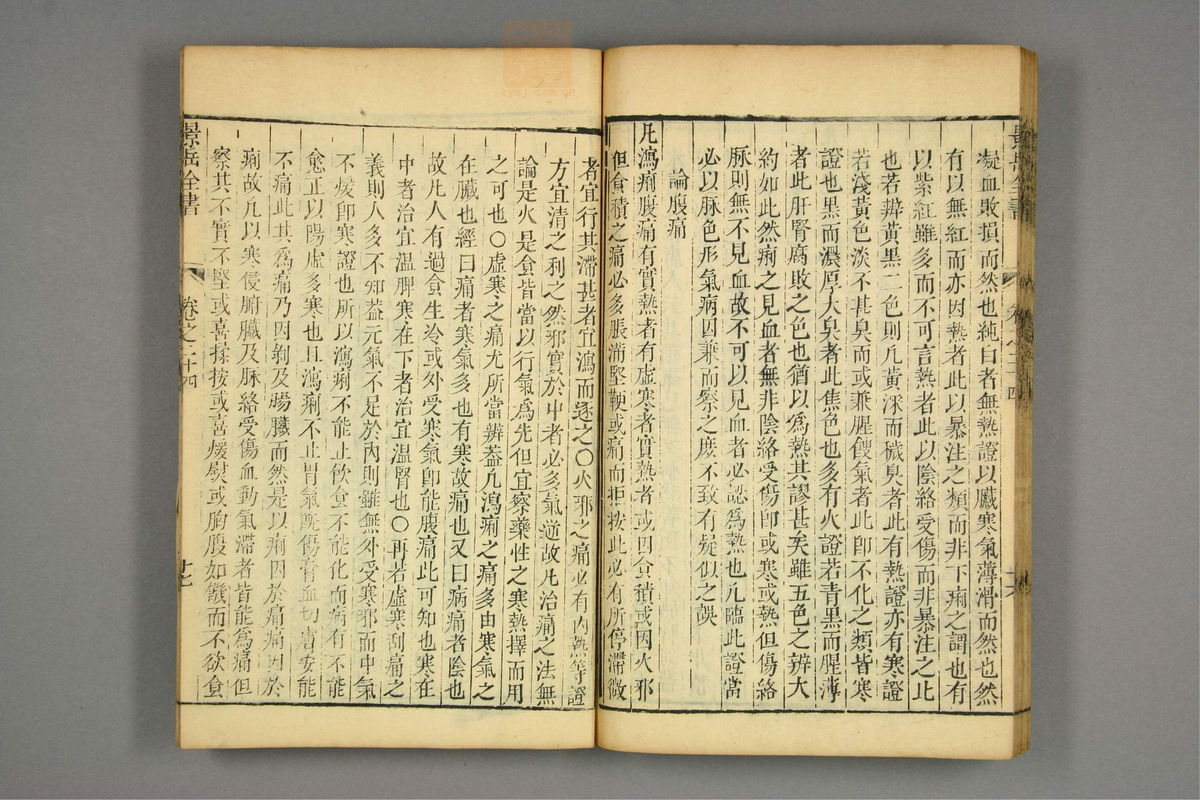 凝血敗損而然也純白者無熱證以臟寒氣薄滑而然也然
有以無紅而亦因熱者此以暴注之類而非下痢之謂也有
以紫紅雖多而不可言熱者此以陰絡受傷而非暴注之比
也若辨黃黑二色則凡黃深而穢臭者此有熱證亦有寒證
若淺黃色淡不甚臭而或兼腥餿氣者此即不化之類皆寒
證也黑而濃厚大臭者此焦色也多有火證若青黑而腥薄
者此肝腎腐敗之色也猶以為熱其謬甚矣雖五色之辨大
約如此然痢之見血者無非陰絡受傷即或寒或熱但傷絡
脉則無不見血故不可以見血者必認為熱也凡臨此證當
必以脉色形氣病因兼而察之庶不致有疑似之誤
論腹痛
凡瀉痢腹痛有實熱者有虛寒者實熱者或因食積或因火邪
但食積之痛必多脹滿堅鞕或痛而拒按此必有所停滯微
者宜行其滯甚者宜瀉而逐之○火邪之痛必有內熱等證
方宜清之利之然邪實於中者必多氣逆故凡治痛之法無
論是火是食皆當以行氣為先但宜察藥性之寒熱擇而用
之可也○虛寒之痛尤所當辨蓋凡瀉痢之痛多由寒氣之
在臟也經曰痛者寒氣多也有寒故痛也又曰病痛者陰也
故凡人有過食生冷或外受寒氣即能腹痛此可知也寒在
中者治宜溫脾寒在下者治宜溫腎也○再若虛寒刮痛之
義則人多不知葢元氣不足於內則雖無外受寒邪而中氣
不煖即寒證也所以瀉痢不能止飲食不能化而病有不能
愈正以陽虛多寒也且瀉痢不止胃氣既傷膏血切害安能
不痛此其為痛乃因剝及腸臟而然是以痢因於痛痛因於
痢故凡以寒侵腑臟及脉絡受傷血動氣滯者皆能為痛但
察其不實不堅或喜揉按或喜煖熨或胸腹如饑而不欲食
景岳全書
卷之二十四
十七
景岳全書
卷之二十四
十六